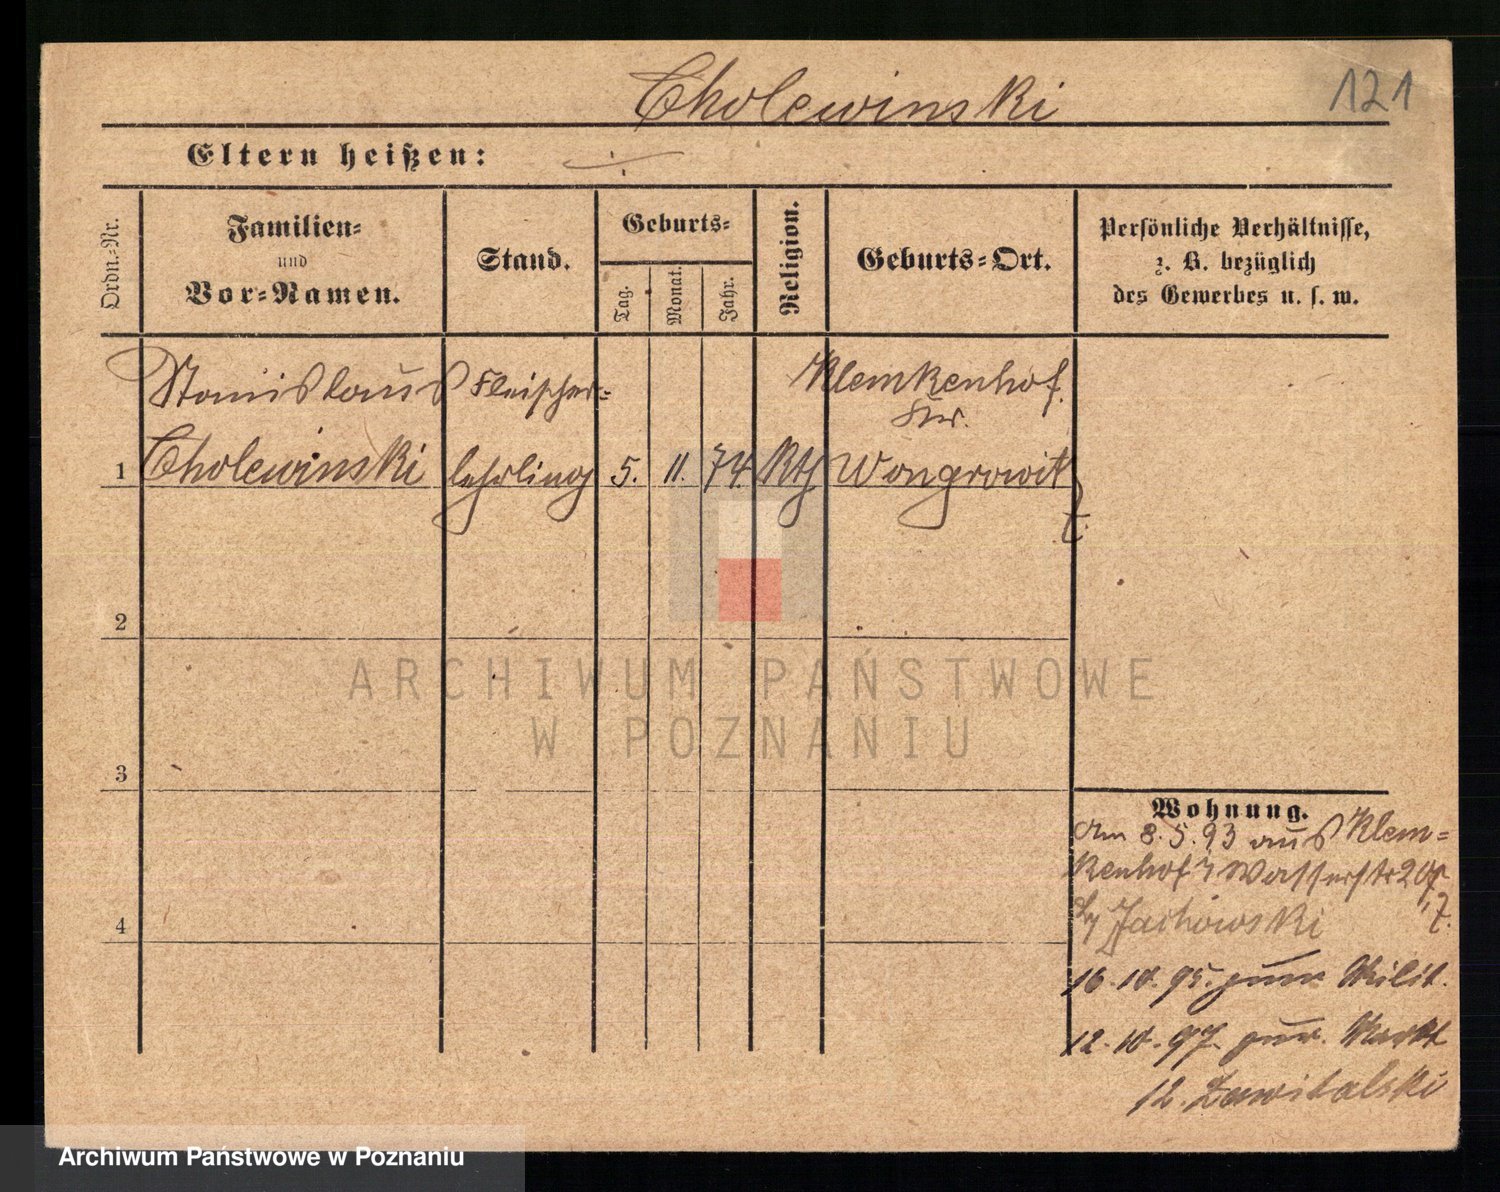 Cholewinski
121
Eltern heißen:
Ordn.-Nr.
Familien-
und
Vor-Namen.
Stand.
Geburts-
Tag.
Monat.
Jahr.
Religion.
Geburts-Ort.
Persönliche Verhältnisse,
z. B. bezüglich
des Gewerbes u. s. w.
Stanislaus Fleischer- Klemkenhof
Kr.
1 Cholewinski lehrling 5. 11. 74. Kth Wongrowit
z.
2
3
4
Wohnung.
Am 8.5.93 aus Klem-
kenhof Wasserstr 20
16.10.95. zum Milit.
12.10.97. zur. Markt
12.
ARCHIWUM PAŃSTWOWE
W POZNANIU
Archiwum Państwowe w Poznaniu